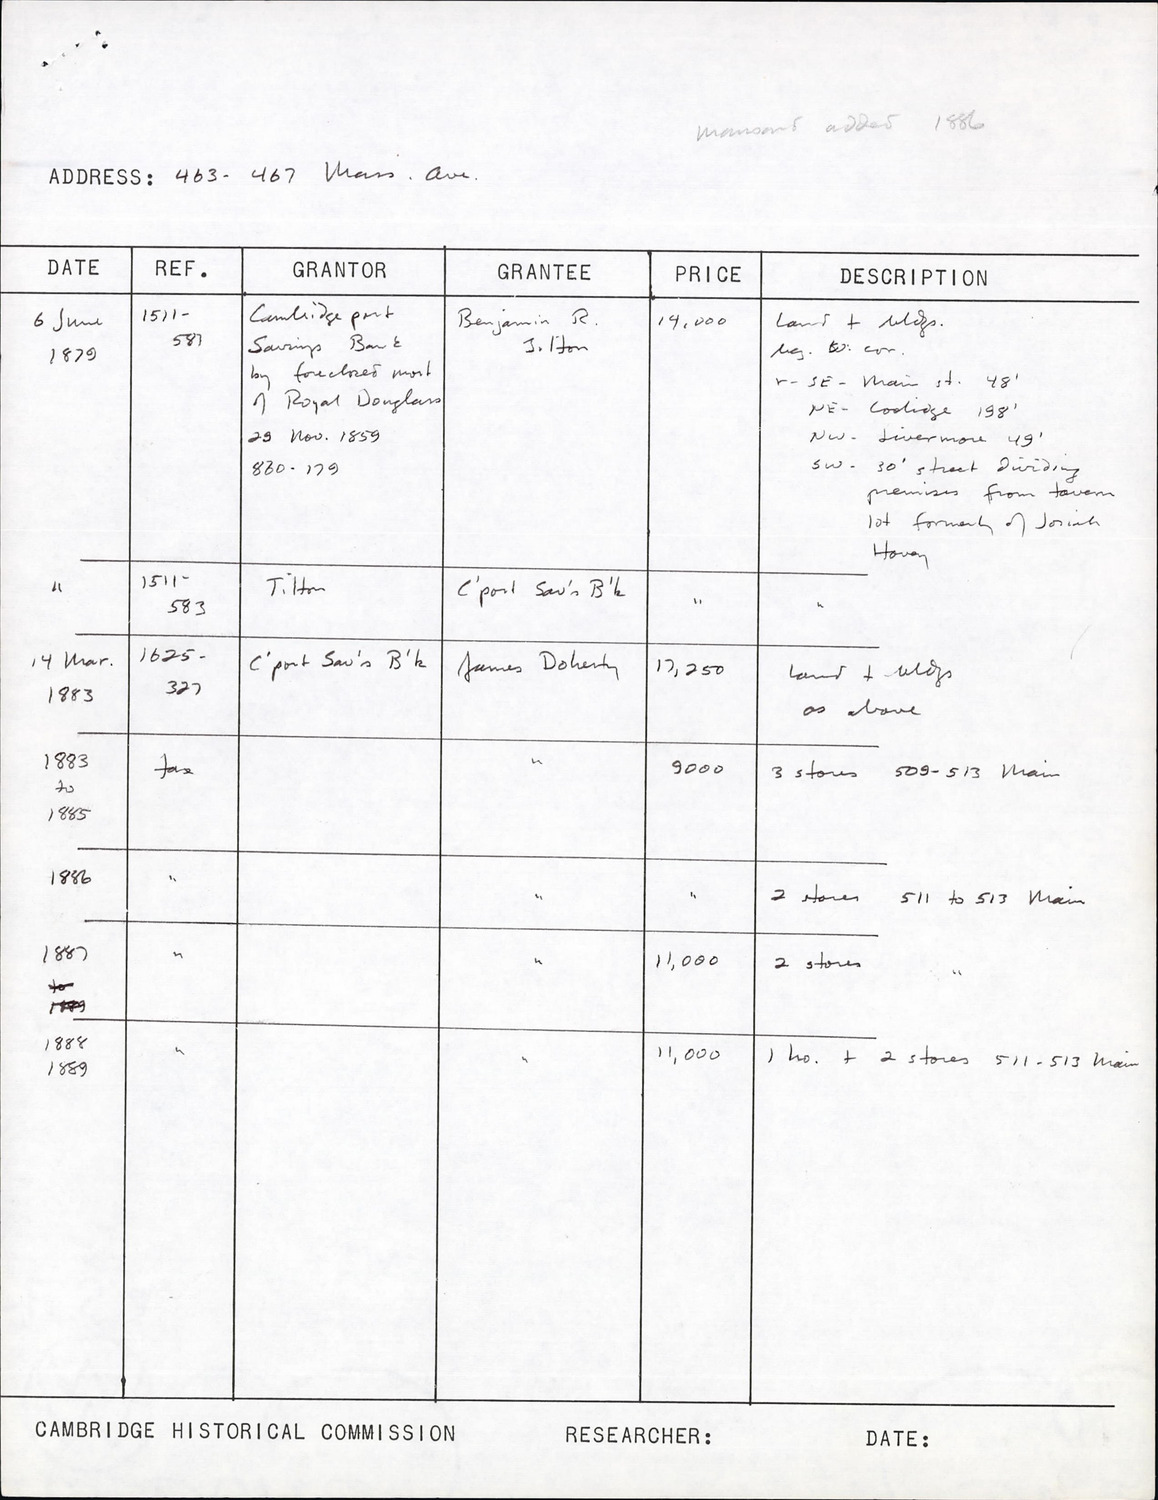 mansard added 1886
ADDRESS: 463- 467 Mass. Ave.
DATE REF. GRANTOR GRANTEE PRICE DESCRIPTION
6 June
1879
1511-
581
Cambridgeport
Savings Bank
by foreclosed mort
of Royal Douglass
29 Nov. 1859
830-179
Benjamin R.
Tilton
14,000
Land + bldgs.
beg. W. cor.
r- SE- Main st. 48'
NE- Coolidge 198'
NW- Livermore 49'
SW- 30' street dividing
premises from tavern
lot formerly of Josiah
Hovey
"
1511-
583
Tilton
C'port Sav's B'k
"
"
14 Mar.
1883
1625-
327
C'port Sav's B'k
James Doherty
17,250
Land + bldgs
as above
1883
to
1885
tax
"
9000
3 stores 509-513 Main
1886
"
"
"
2 stores 511 to 513 Main
1887
to
1889
"
"
11,000
2 stores "
1888
1889
"
"
11,000
1 ho. + 2 stores 511-513 Main
CAMBRIDGE HISTORICAL COMMISSION RESEARCHER: DATE: